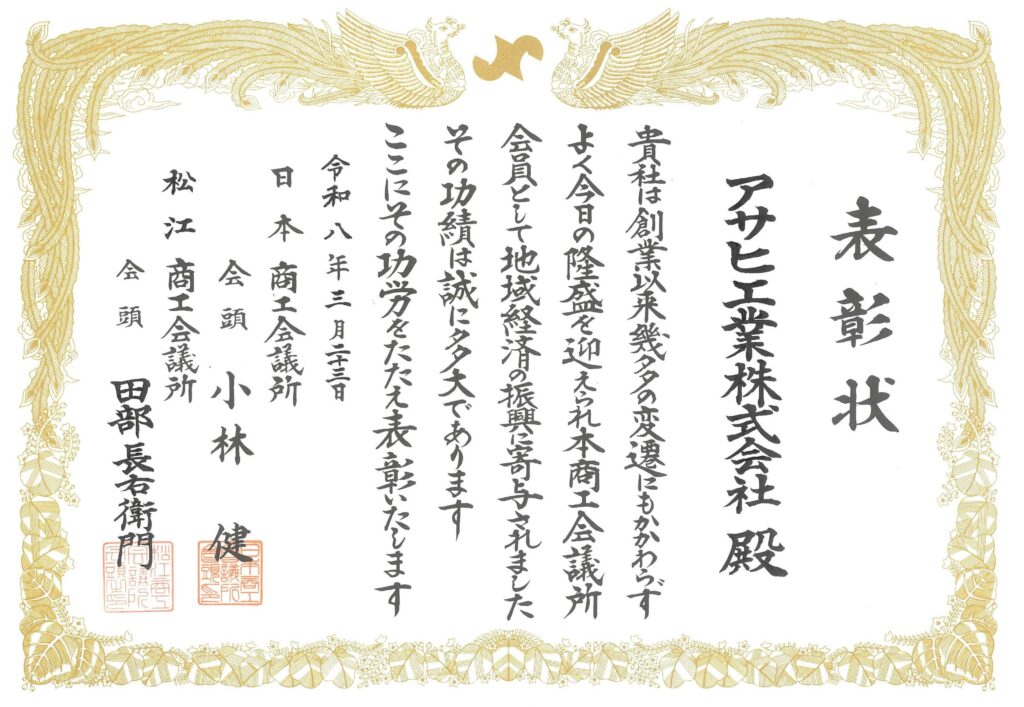 表彰状
アサヒ工業株式会社 殿
貴社は創業以来幾多の変遷にもかかわらず
よく今日の隆盛を迎えられ本商工会議所
会員として地域経済の振興に寄与されました
その功績は誠に多大であります
ここにその功労をたたえ表彰いたします
令和八年三月二十三日
日本商工会議所
会頭 小林 健
松江商工会議所
会頭 田部長右衛門